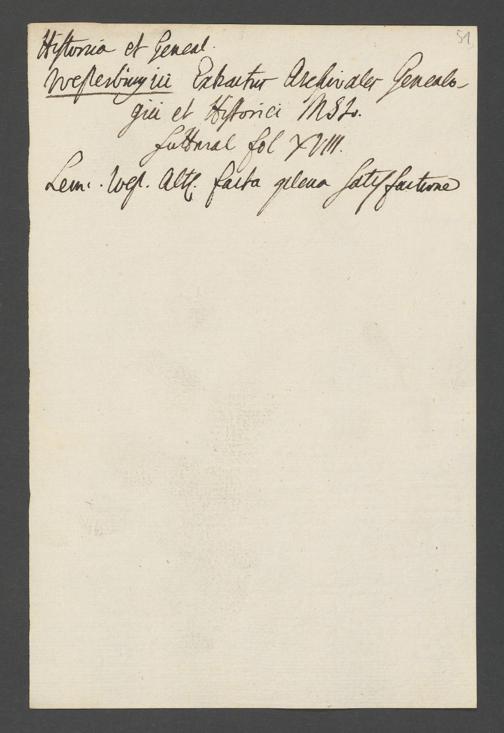 51
Historia et Geneal.
Westerburgici Extractus Archivales Genealo-
gici et Historici MSti.
futteral fol XVIII.
West. Alt. facta plena satisfactione